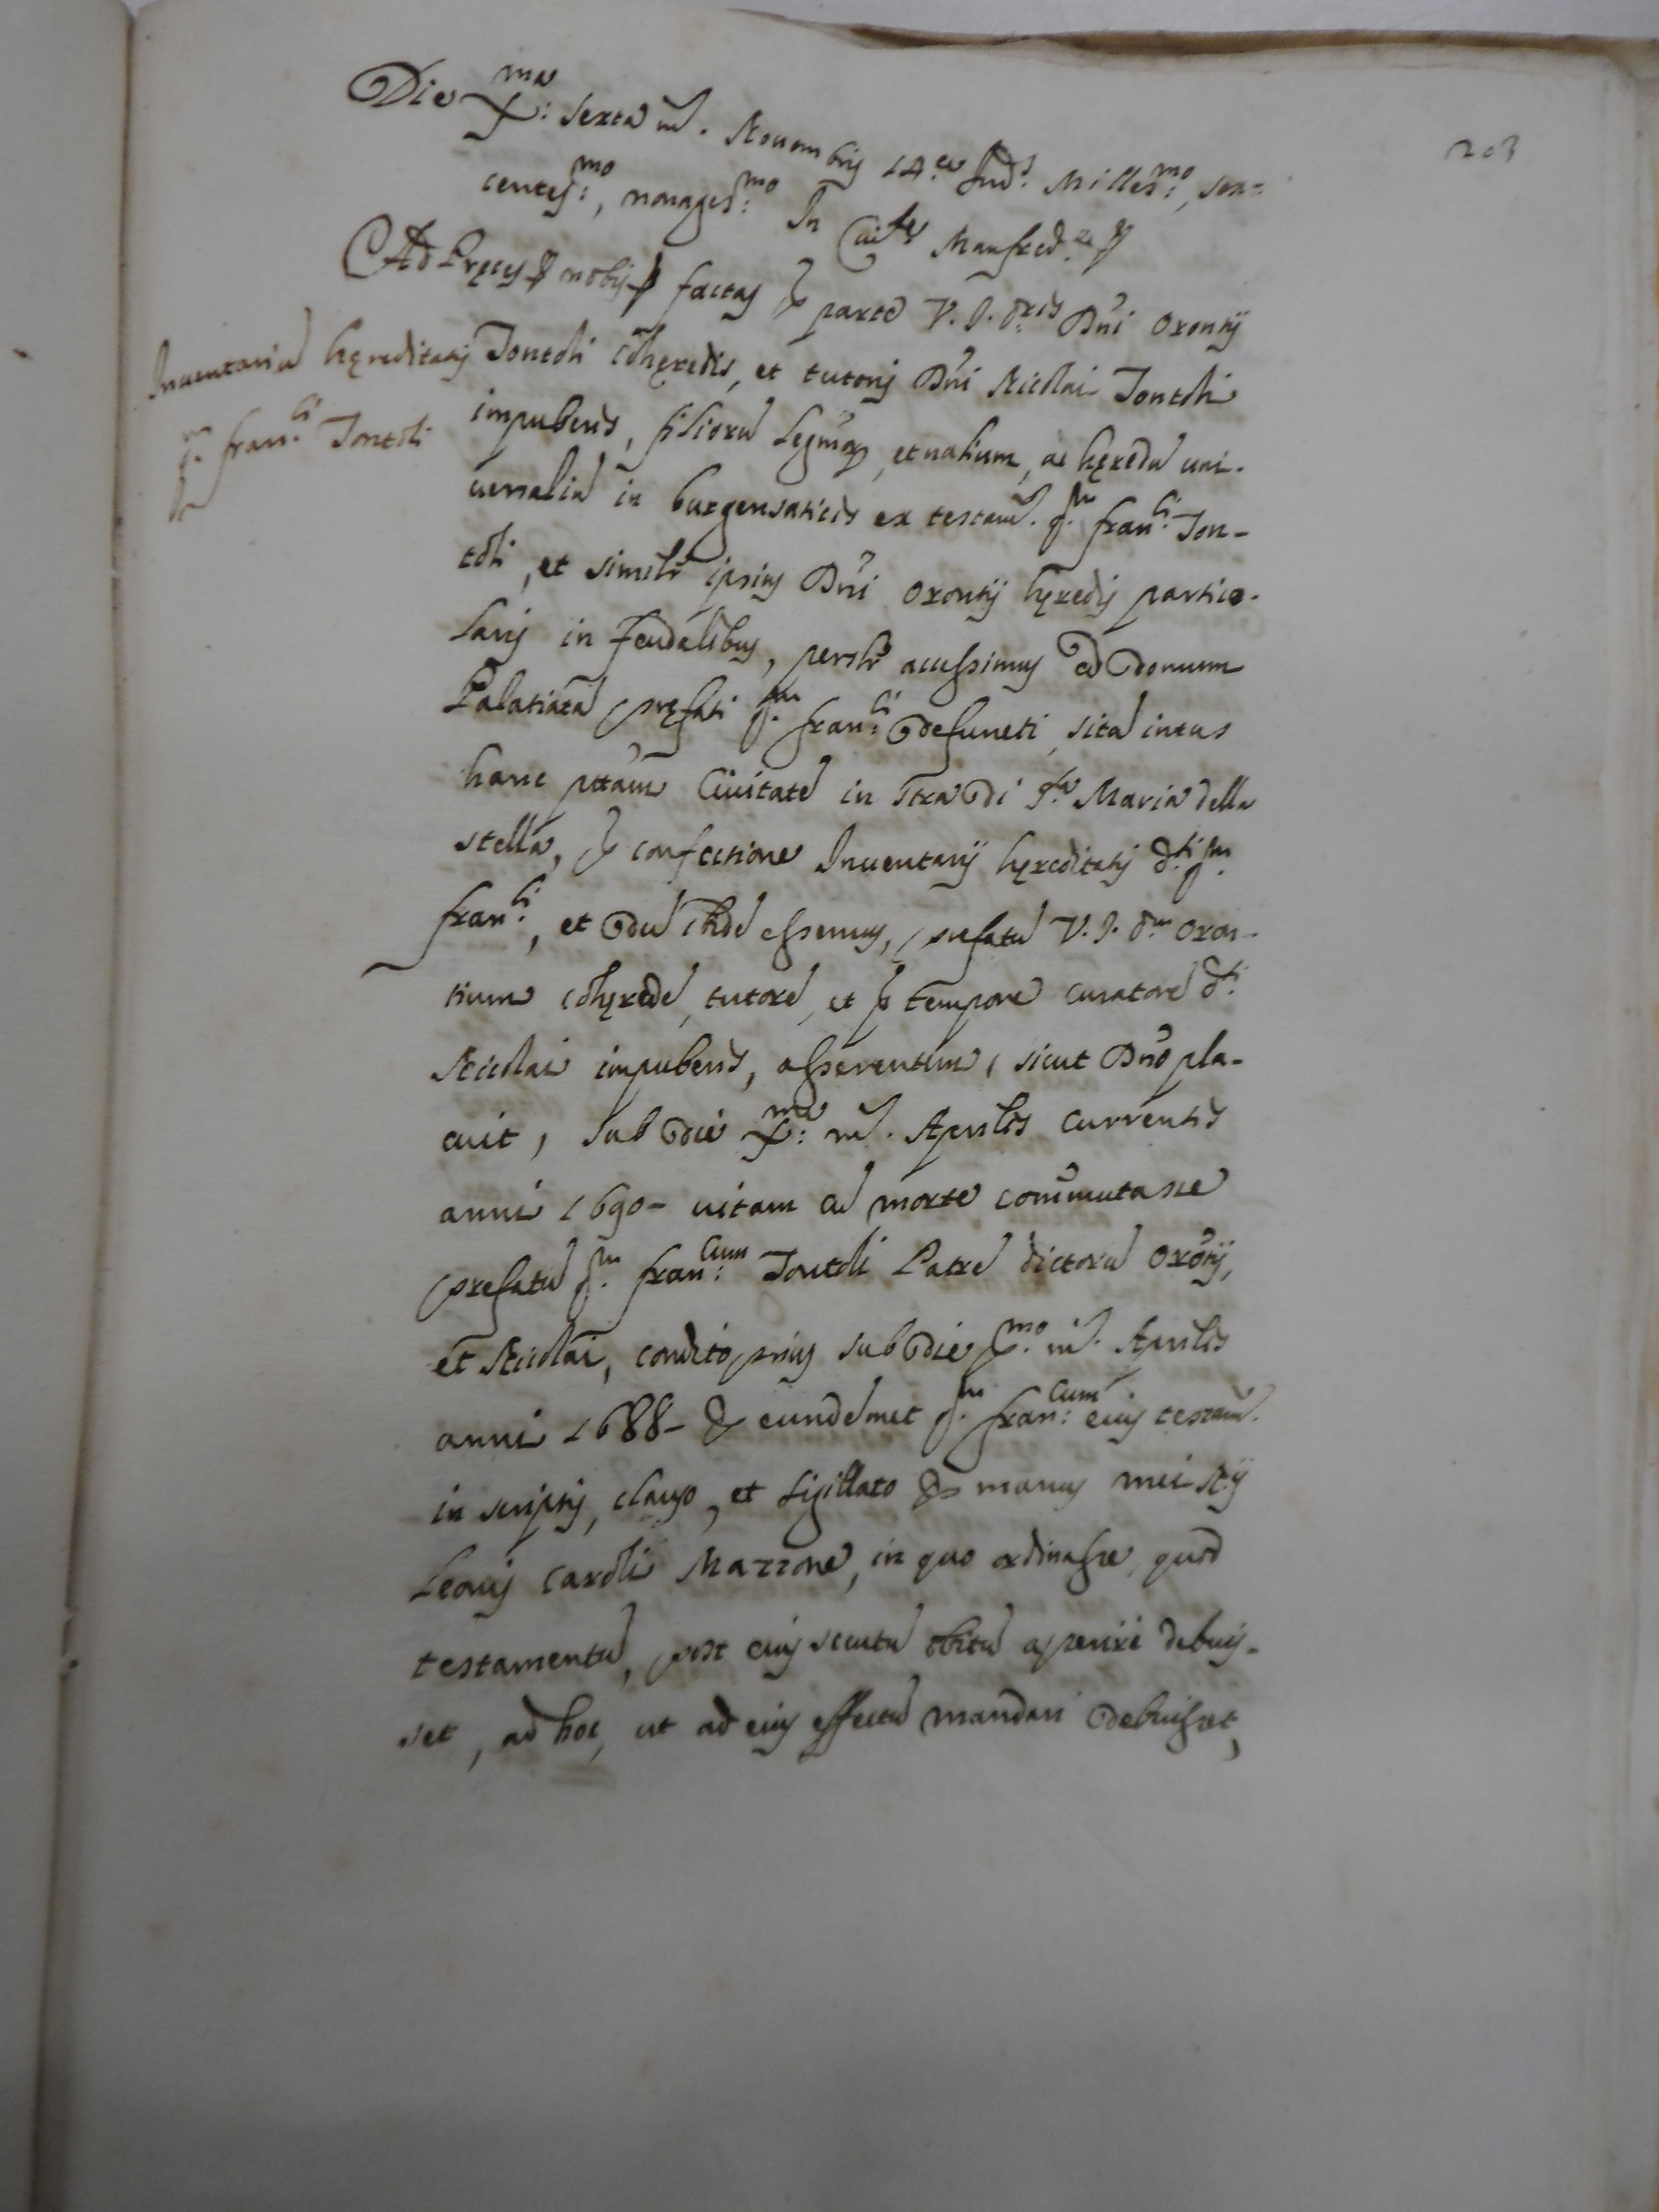 203
Die X:ma sexta m. Novembris 14.ae Ind.s Milles:mo, sex=
centes:mo, nonages:mo In Civ.te Manfred.ae
Ad Pręces nobis factas p parte V. J. D.ris Dn̄i Orontij
Inventariu hęreditatis qm fran:ci Tontoli
Tontoli cohęredis, et tutoris Dn̄i Nicolai Tontoli
impuberis, filioru legmorz, et natium, ac hęredu uni-
versaliu in burgensaticis ex testam. qm fran:ci Ton-
toli, et similr ipsius Dn̄i Orontij hęredis particu-
laris in feudalibus, persolr accessimus ad domum
Palatiata pręfati qm fran:ci defuncti, sita intus
hanc pttam Civitate in stra di S.ta Maria della
stella, p confectione Inventarij hęreditatis d.ti qm
fran:ci, et du ibide essemus, prefatu V. J. D.m Oron-
tium cohęrede, tutore, et p tempore curatore d.ti
Nicolai impuberis, asserentem, sicut Dn̄o pla-
cuit, sub die X:ma m. Aprilis currentis
anni 1690- vitam cu morte commutasse
prefatu qm fran:cum Tontoli Patre dictoru Orontij,
et Nicolai, condito prius sub die X:mo m. Aprilis
anni 1688- p eundemet qm fran:cum eius testam.
in scriptis, clauso, et sigillato p manus mei N.ij
Leonis Caroli Mazzone, in quo ordinasse, quod
testamentu, post eius secutu obitu aperiri debuis-
set, ad hoc, ut ad eius effectu mandari debuisset,